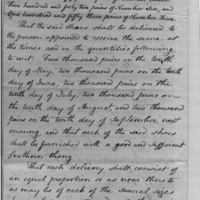 Five hundred and forty two pairs of Number Six, and
One hundred and fifty three pairs of Number Nine.
That the said shoes shall be delivered to
the person appointed to receive the same, at
the times and in the quantities following
to wit: Two thousand pairs on the tenth
day of May, two thousand pairs on the tenth
day of June, two thousand pairs on the
tenth day of July, two thousand pairs on
the tenth day of August, and two thousand
pairs on the tenth day of September, next
ensuing and that each of the said shoes
shall be furnished with a good and sufficient
leathern thong.
That each delivery shall consist of
an equal proportion or as near there to
as may be of each of the several sizes